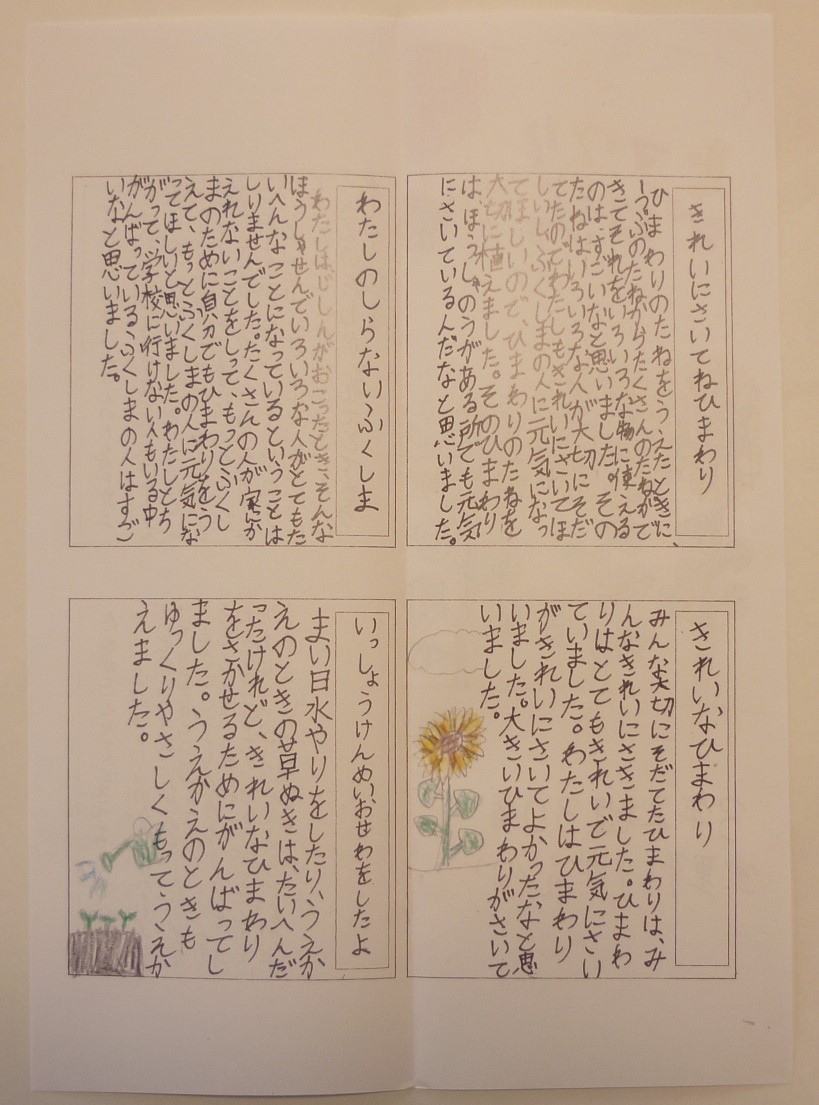 きれいにさいてねひまわり
ひまわりのたねをうえたときに、
一つぶのたねからたくさんのたねがで
きてそれをいろいろな物に使える
のは、すごいなと思いました。その
たねはいろいろな人が大切にそだ
てたのでわたしもきれいにさいてほ
しいし、ふくしまの人に元気になっ
てほしいので、ひまわりのたねを
大切に植えました。そのひまわり
は、ほうしゃのうがある所でも元気
にさいているんだなと思いました。
わたしのしらないふくしま
わたしは、じしんがおこったとき、そんな
ほうしゃせんでいろいろな人がとてもた
いへんなことになっているということは
しりませんでした。たくさんの人が家にか
えれないことをしって、もっとふくし
まのために自分でもひまわりをう
えて、もっとふくしまの人に元気にな
ってほしいと思いました。わたしとち
がって、学校に行けない人もいる中
がんばっているふくしまの人はすご
いなと思いました。
きれいなひまわり
みんな大切にそだてたひまわりは、み
んなきれいにさきました。ひまわ
りはとてもきれいで元気にさい
ていました。わたしはひまわり
がきれいにさいてよかったなと思
いました。大きいひまわりがさいて
いました。
いっしょうけんめいおせわをしたよ
まい日水やりをしたり、うえか
えのときの草ぬきは、たいへんだ
ったけれど、きれいなひまわり
をさかせるためにがんばってし
ました。うえかえのときも
ゆっくりやさしくもってうえか
えました。